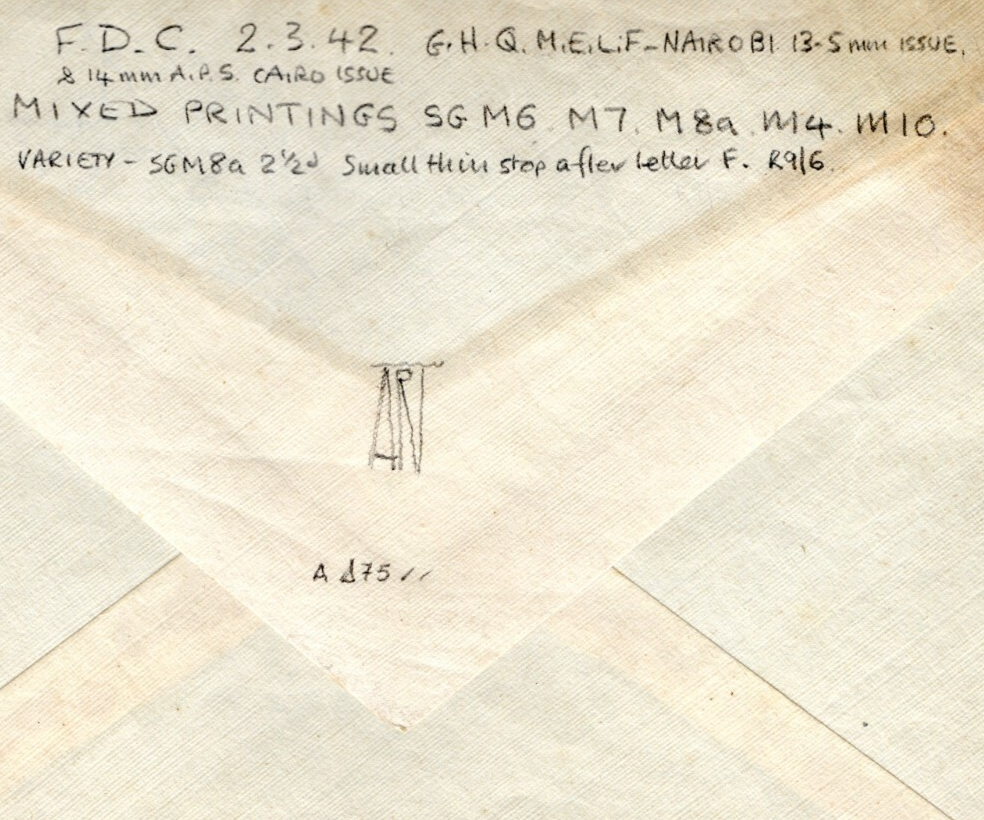 F.D.C. 2.3.42. G.H.Q. M.E.L.F-NAIROBI 13-5mm ISSUE,
& 14mm A.P.S. CAIRO ISSUE
MIXED PRINTINGS SG M6. M7. M8a. M4. M10.
VARIETY - SGM8a 2½d Small thin stop after letter F. R9/6.
A 175